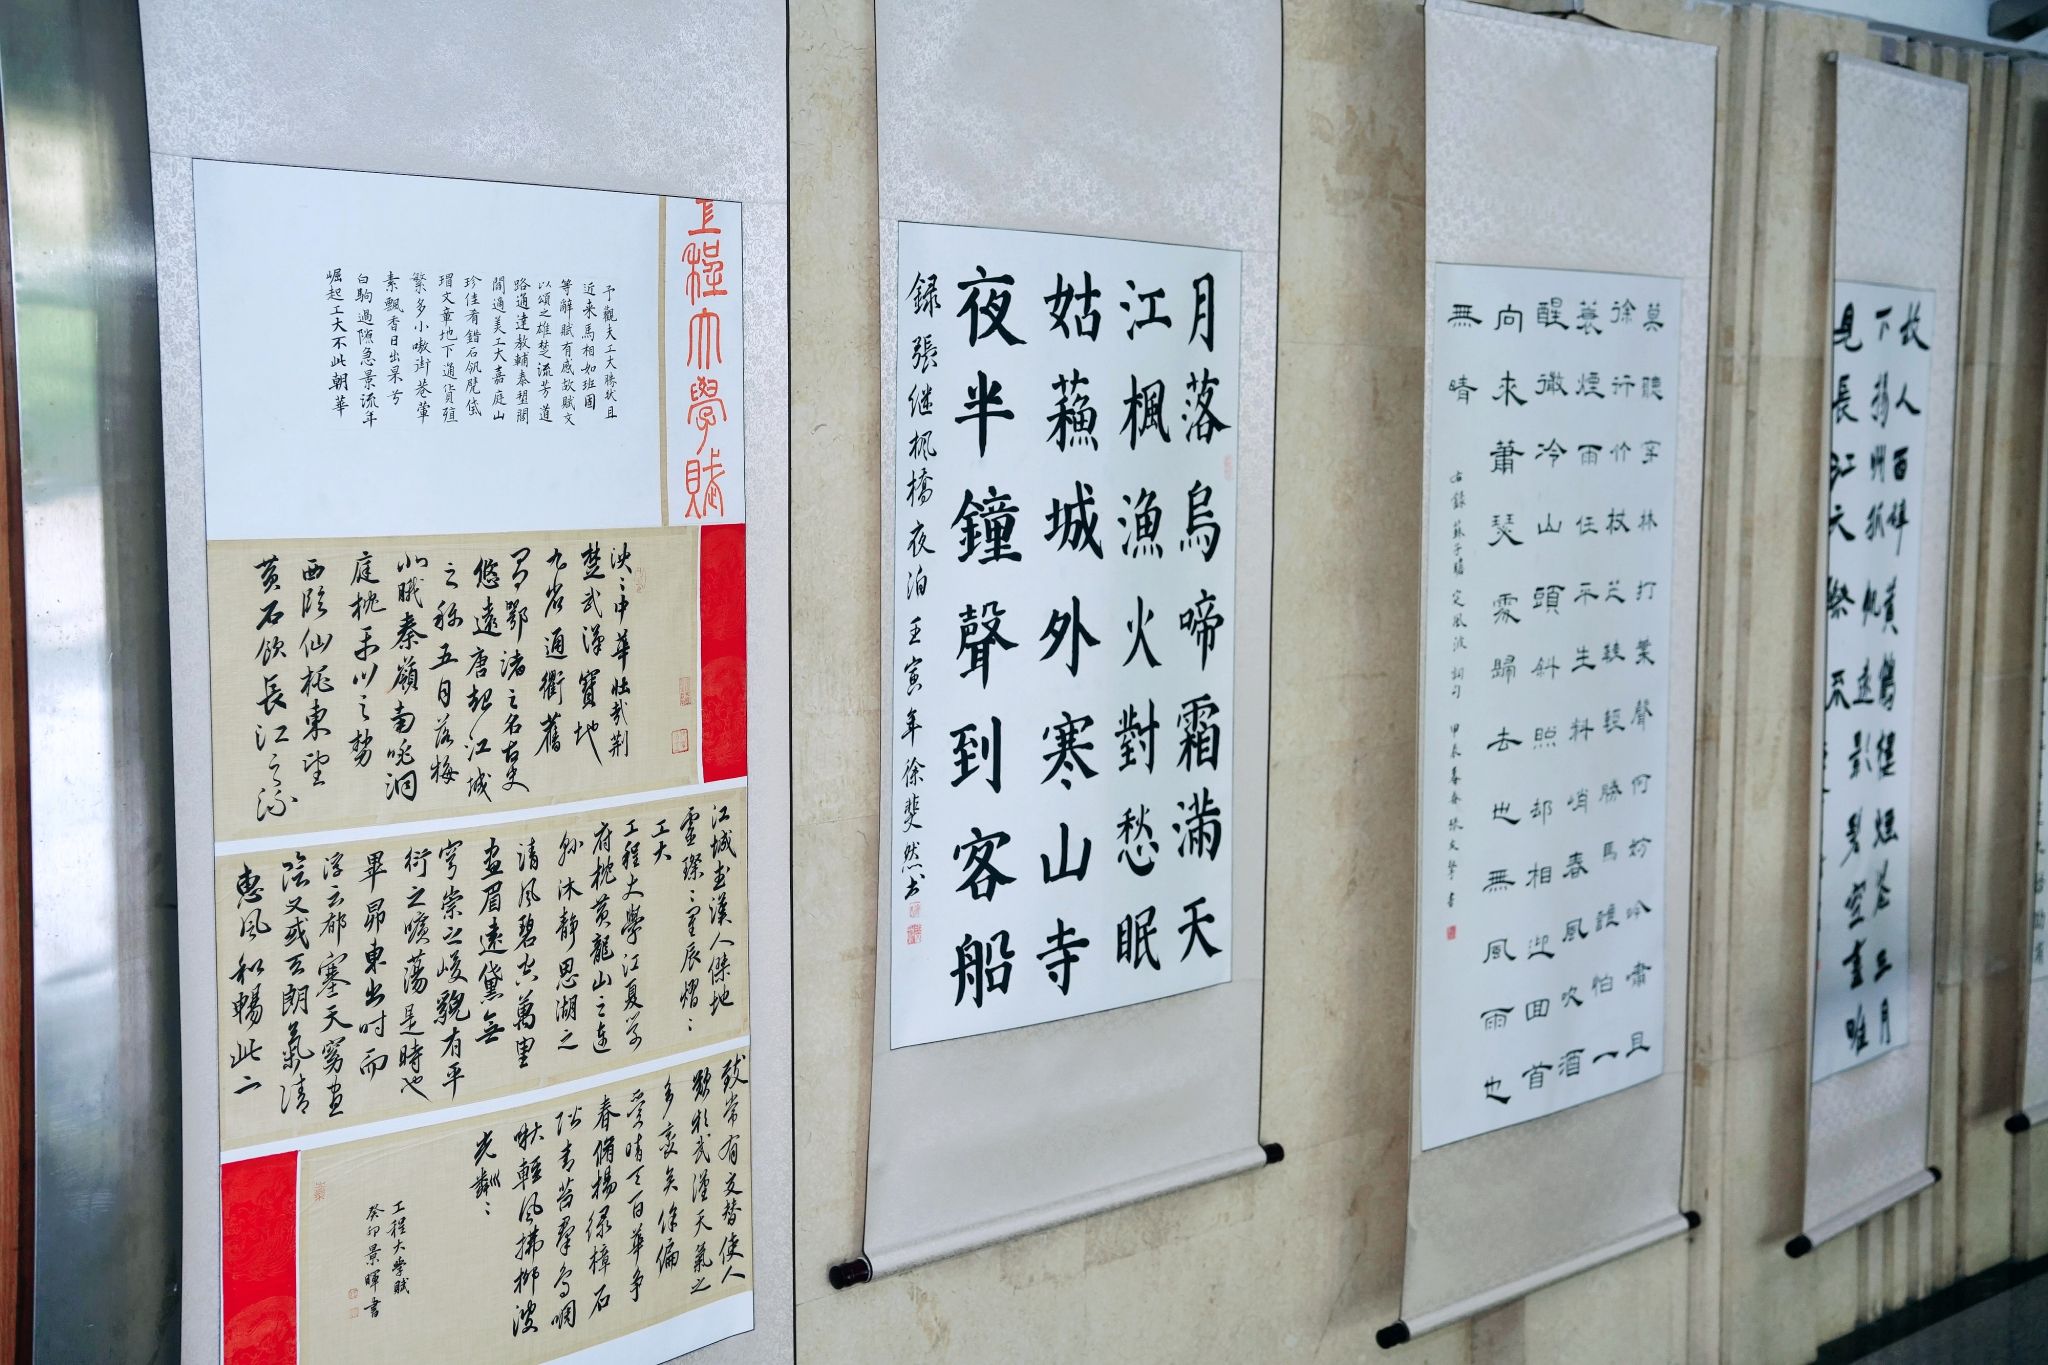 工程大學賦
予觀夫工大勝狀且
近来馬相如班固
等辭賦有感故賦文
以頌之雄楚流芳道
路通達教輔泰塑閣
閣通美工大嘉庭山
珍佳肴錯石
瑁文章地下通貨殖
繁多小嗷街巷葷
素飄香日出杲兮
白駒過隙急景流年
崛起工大不此朝華
泱〻中華壮哉荆
楚武漢寶地
九省通衢舊
号鄂渚之名古史
悠遠唐起江城
之称五月落梅
北眺秦嶺南眺洞
庭枕平川之勢
西臨仙桃東望
黄石飲長江之流
江城武漢人傑地
靈璨〻星辰熠〻
工大
工程大學江夏学
府枕黄龍山之連
脉沐静思湖之
清風碧空萬里
畫眉遠黛無
穹崇之峻貌有平
衍之曠蕩是時也
畢昴東出时而
浮云都塞天窮畫
陰又或云朗氣清
惠風和暢此二
致常有交替使人
歎於武漢天氣之
多變矣徐偏
賞晴天百華争
春脩楊绿樟石
階青苔群鳥啁
啾輕風拂柳波
光粼〻
工程大學賦
癸卯景暉書
月落烏啼霜滿天
江楓漁火對愁眠
姑蘓城外寒山寺
夜半鐘聲到客船
録張继枫橋夜泊壬寅年徐斐然书
莫聽穿林打葉聲何妨吟嘯且
徐行竹杖芒鞋輕勝馬誰怕一
蓑煙雨任平生料峭春風吹酒
醒微冷山頭斜照却相迎回首
向來蕭瑟處歸去也無風雨也
無晴
右録蘇子瞻定風波詞句 甲辰暮春張文馨書
故人西辭黄鶴樓煙花三月
下揚州孤帆遠影碧空盡唯
見長江天際流